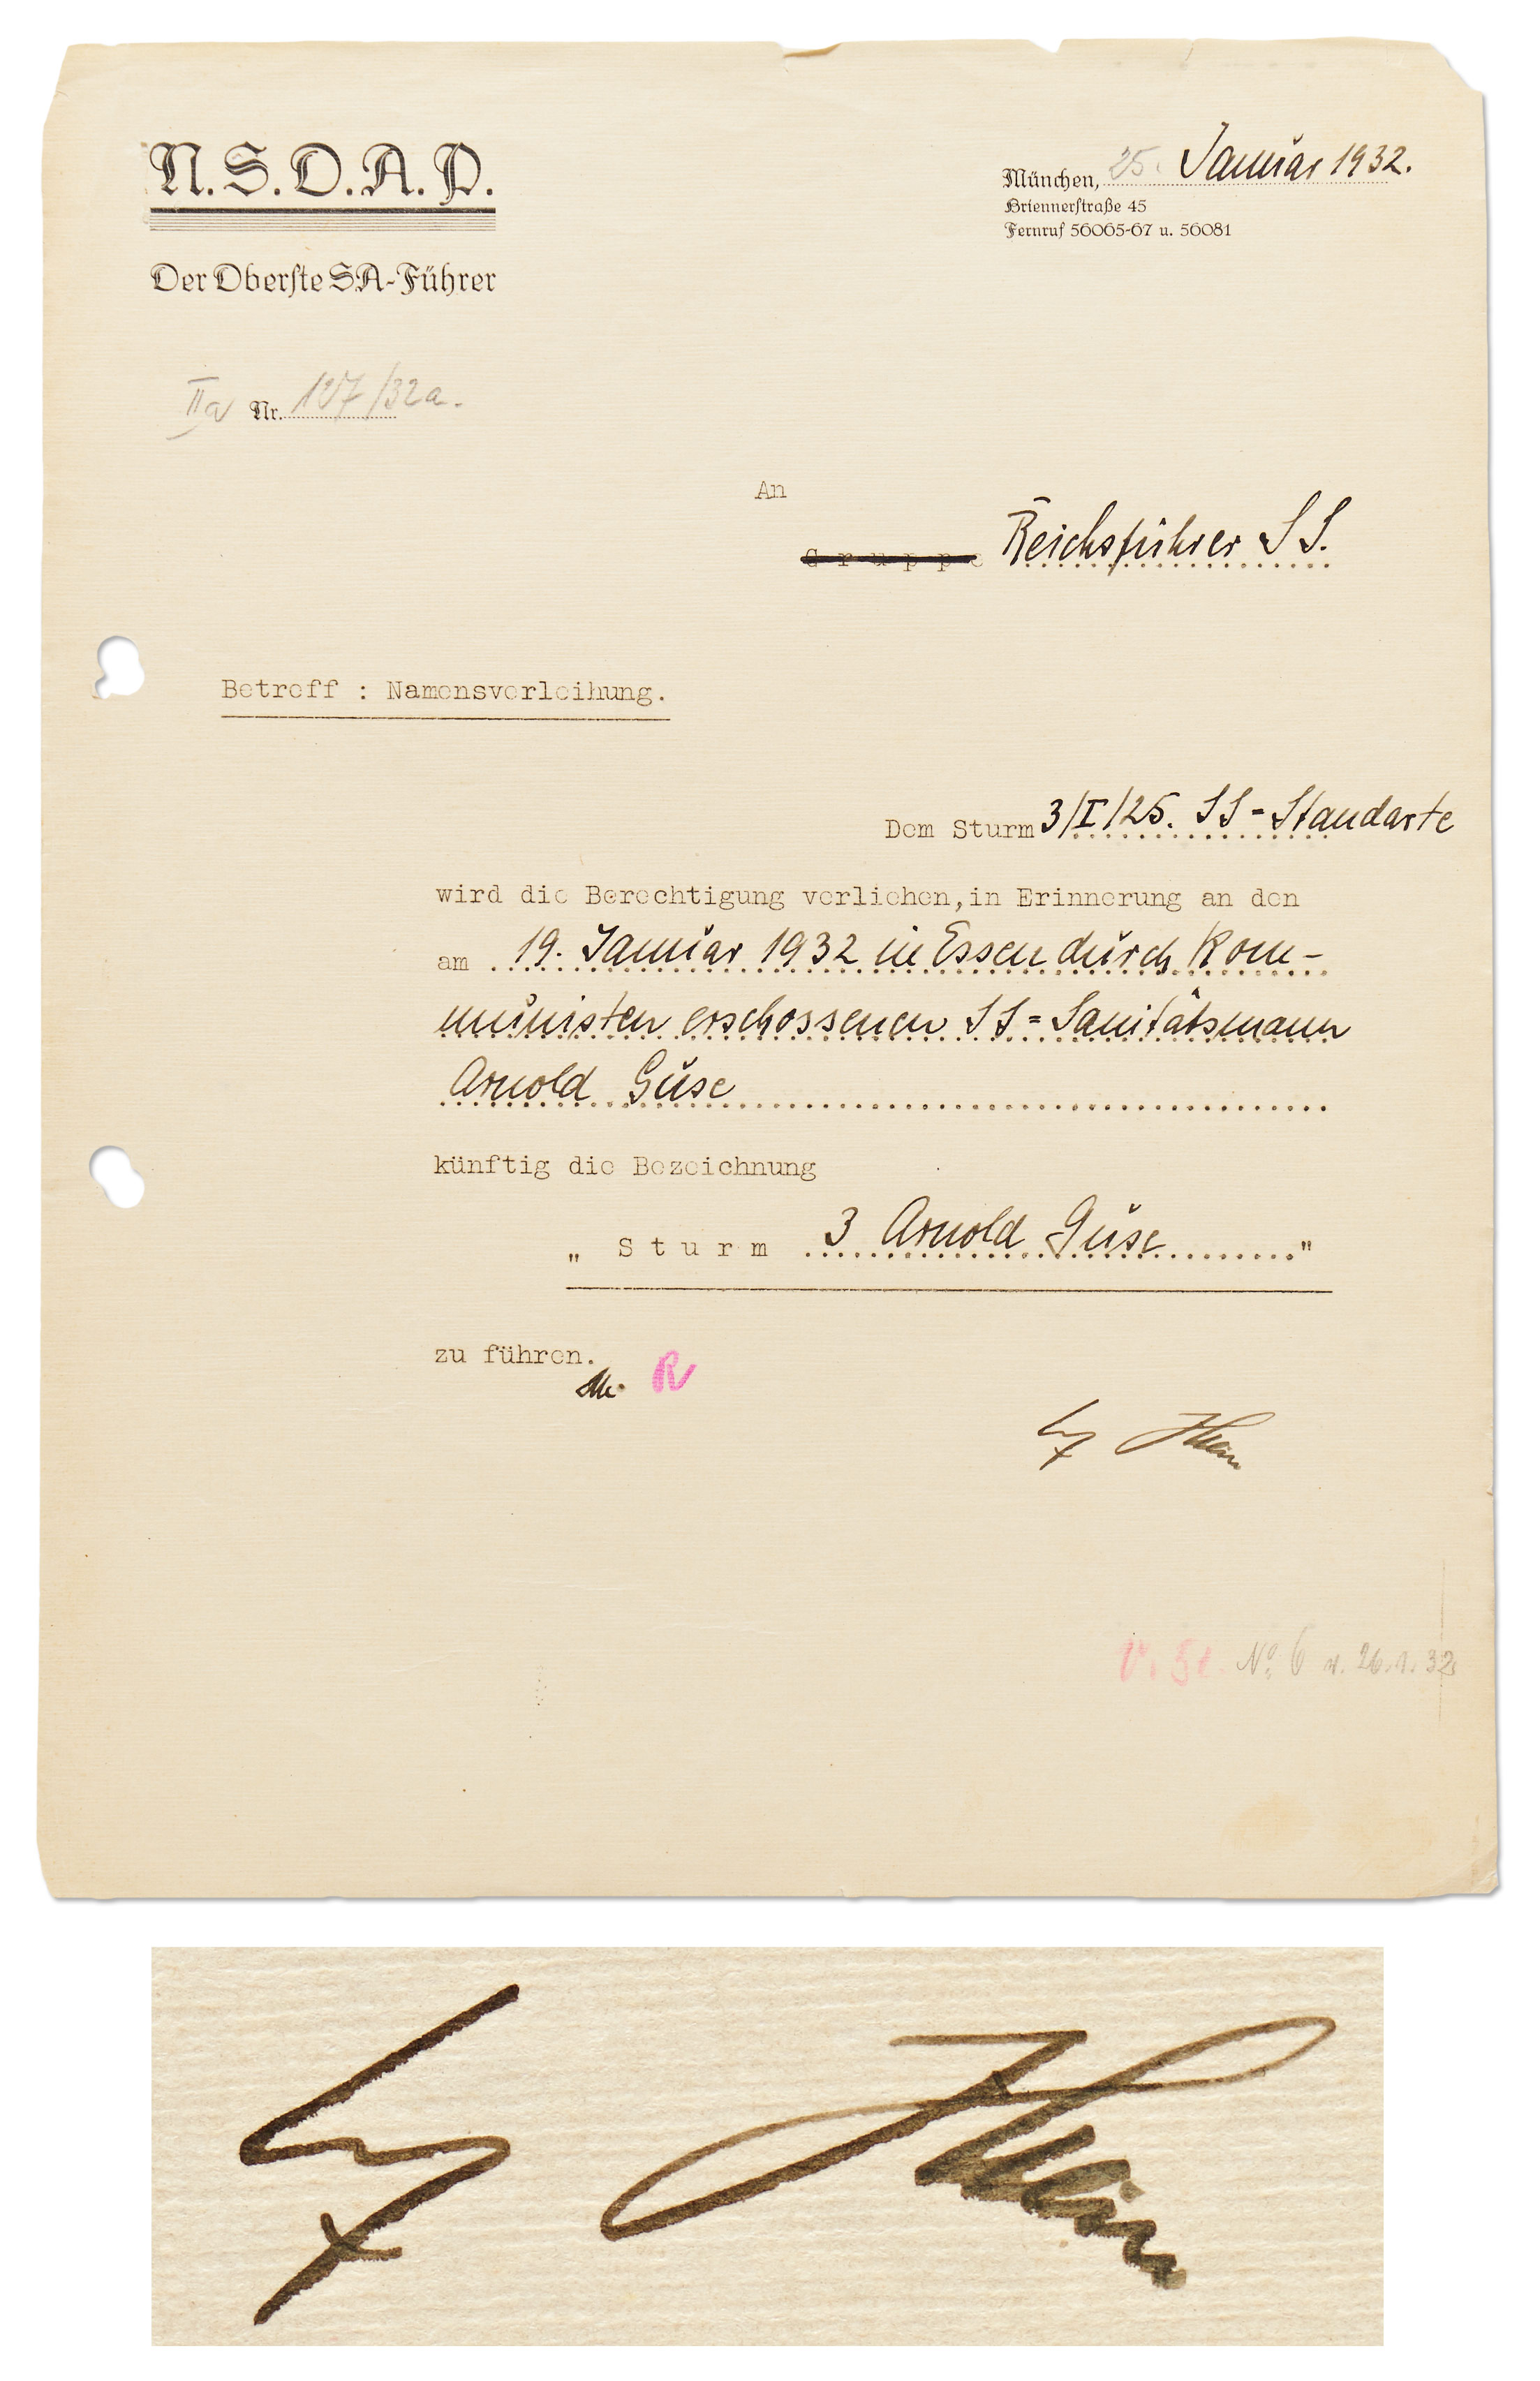 N.S.D.A.P.
Der Oberste SA-Führer
München, 25. Januar 1932.
Briennerstraße 45
Fernruf 56065-67 u. 56081
IIa Nr. 127/32a.
An
Gruppe Reichsführer SS.
Betreff : Namensverleihung.
Dem Sturm 3/I/25. SS-Standarte
wird die Berechtigung verliehen, in Erinnerung an den
am 19. Januar 1932 in Essen durch Kom-
munisten erschossenen SS=Sanitätsmann
Arnold Guse
künftig die Bezeichnung
„ Sturm 3 Arnold Guse "
zu führen.
R
No. 6 v. 26.1.32